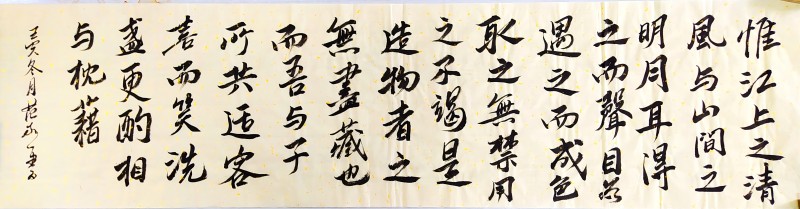 惟江上之清
風与山間之
明月耳得
之而聲目為
遇之而成色
取之無禁用
之不竭是
造物者之
無盡藏也
而吾与子
所共适客
喜而笑洗
盞更酌相
与枕藉
壬寅冬月